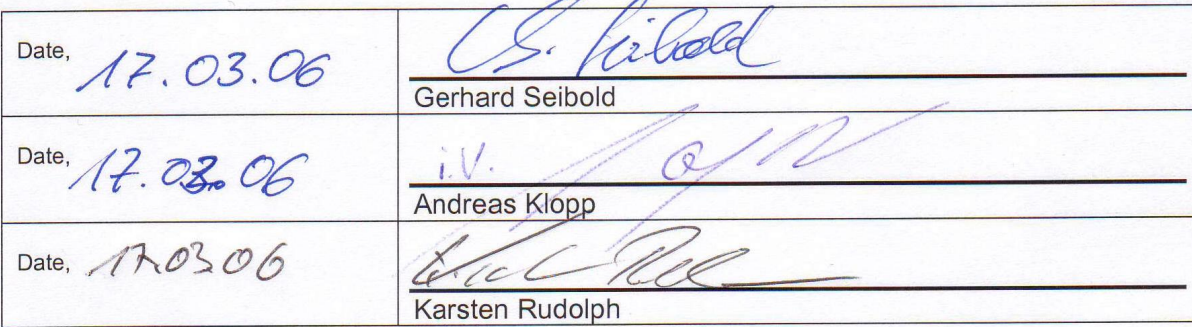 Date, 17.03.06
G. Seibold
Gerhard Seibold
Date, 17.03.06
i.V.
Andreas Klopp
Date, 17.03.06
Karsten Rudolph